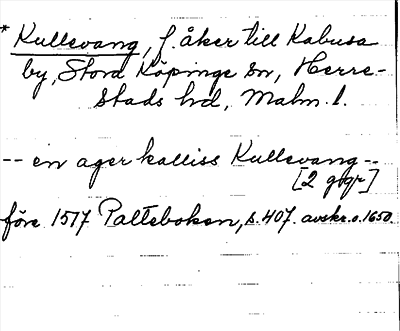 * Kullevang, f. åker till Kabusa
by, Stora Köpinge sn, Herre-
stads hd, Malm. l.
-- en ager kalliss Kullevang --
[2 ggr]
före 1517 Palteboken, s. 407. avskr. o. 1650.